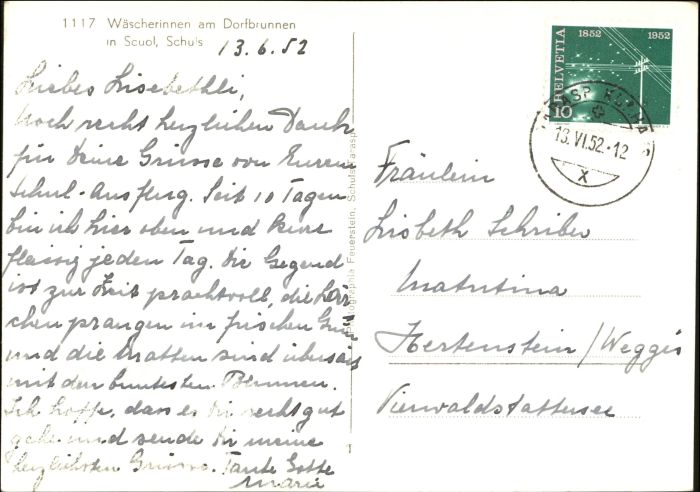 1117 Wäscherinnen am Dorfbrunnen
in Scuol, Schuls
13.6.52
Liebes Lisebethli,
Noch recht herzlichen Dank
für Deine Grüsse von Eurem
Schul-Ausflug. Seit 10 Tagen
bin ich hier oben und kure
fleissig jeden Tag. Die Gegend
ist zur Zeit prachtvoll, die Lär-
chen prangen im frischen Grün
und die Matten sind übersät
mit den buntesten Blumen.
Ich hoffe, dass es Dir recht gut
gehe und sende Dir meine
herzlichsten Grüsse. Tante Gotte
Marie
Photographie Feuerstein, Schuls-Tarasp
1852 1952
HELVETIA
10
TARASP
13.VI.52.-12
X
Fräulein
Lisbeth Schriber
Matutina
Hertenstein/Weggis
Vierwaldstättersee